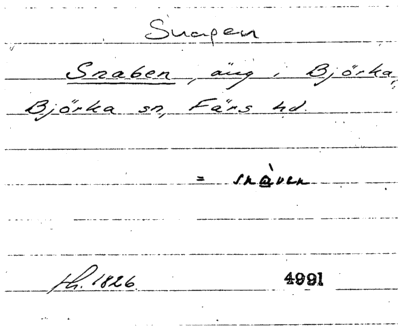 Snapen
Snaben, äng i Björka,
Björka sn, Färs hd.
= snàven
fh. 1826. 4991